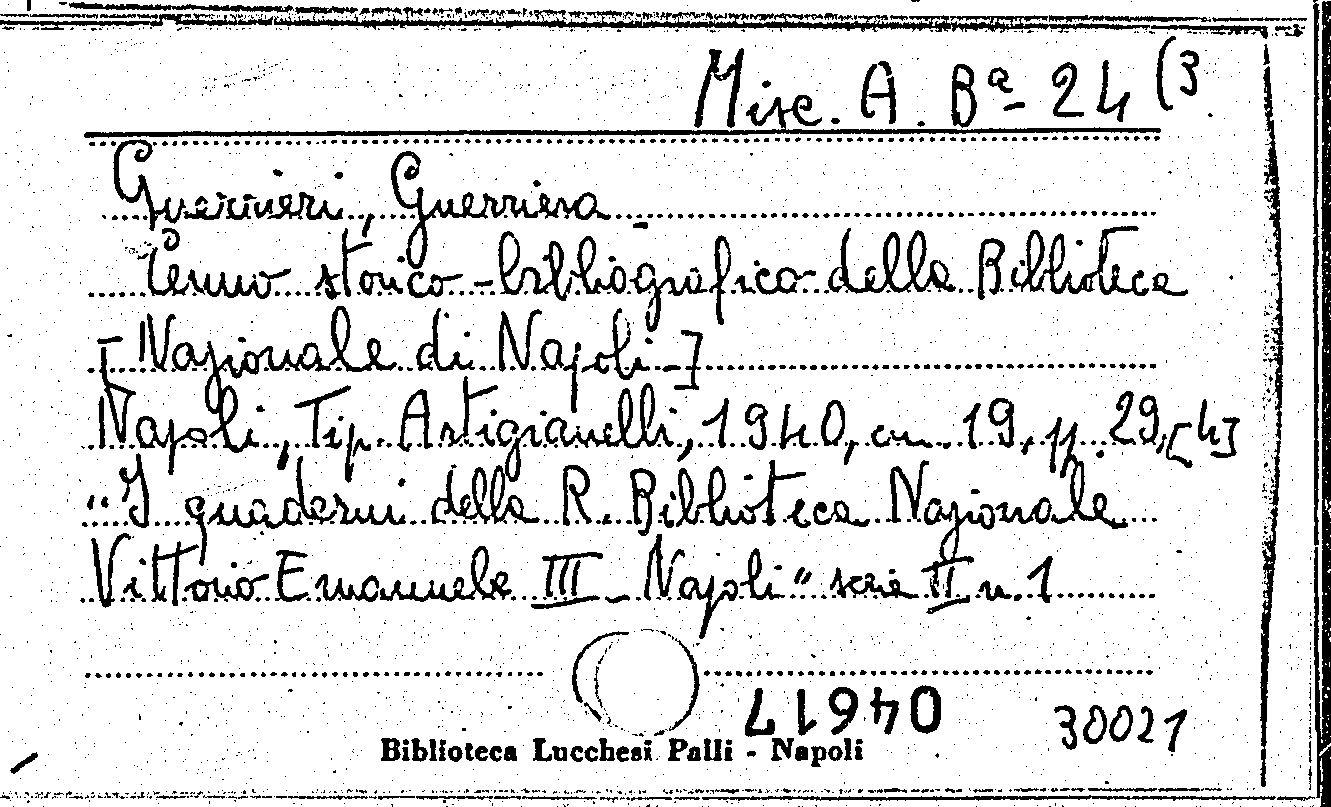 Misc. A. Bª 24 (3
Guerrieri, Guerriera
Cenno storico-bibliografico della Biblioteca
[Nazionale di Napoli-]
Napoli, Tip. Artigianelli, 1940, cm. 19, pp. 29,[4]
"I quaderni della R. Biblioteca Nazionale
Vittorio Emanuele III - Napoli" serie II n. 1
04617
30021
Biblioteca Lucchesi Palli - Napoli